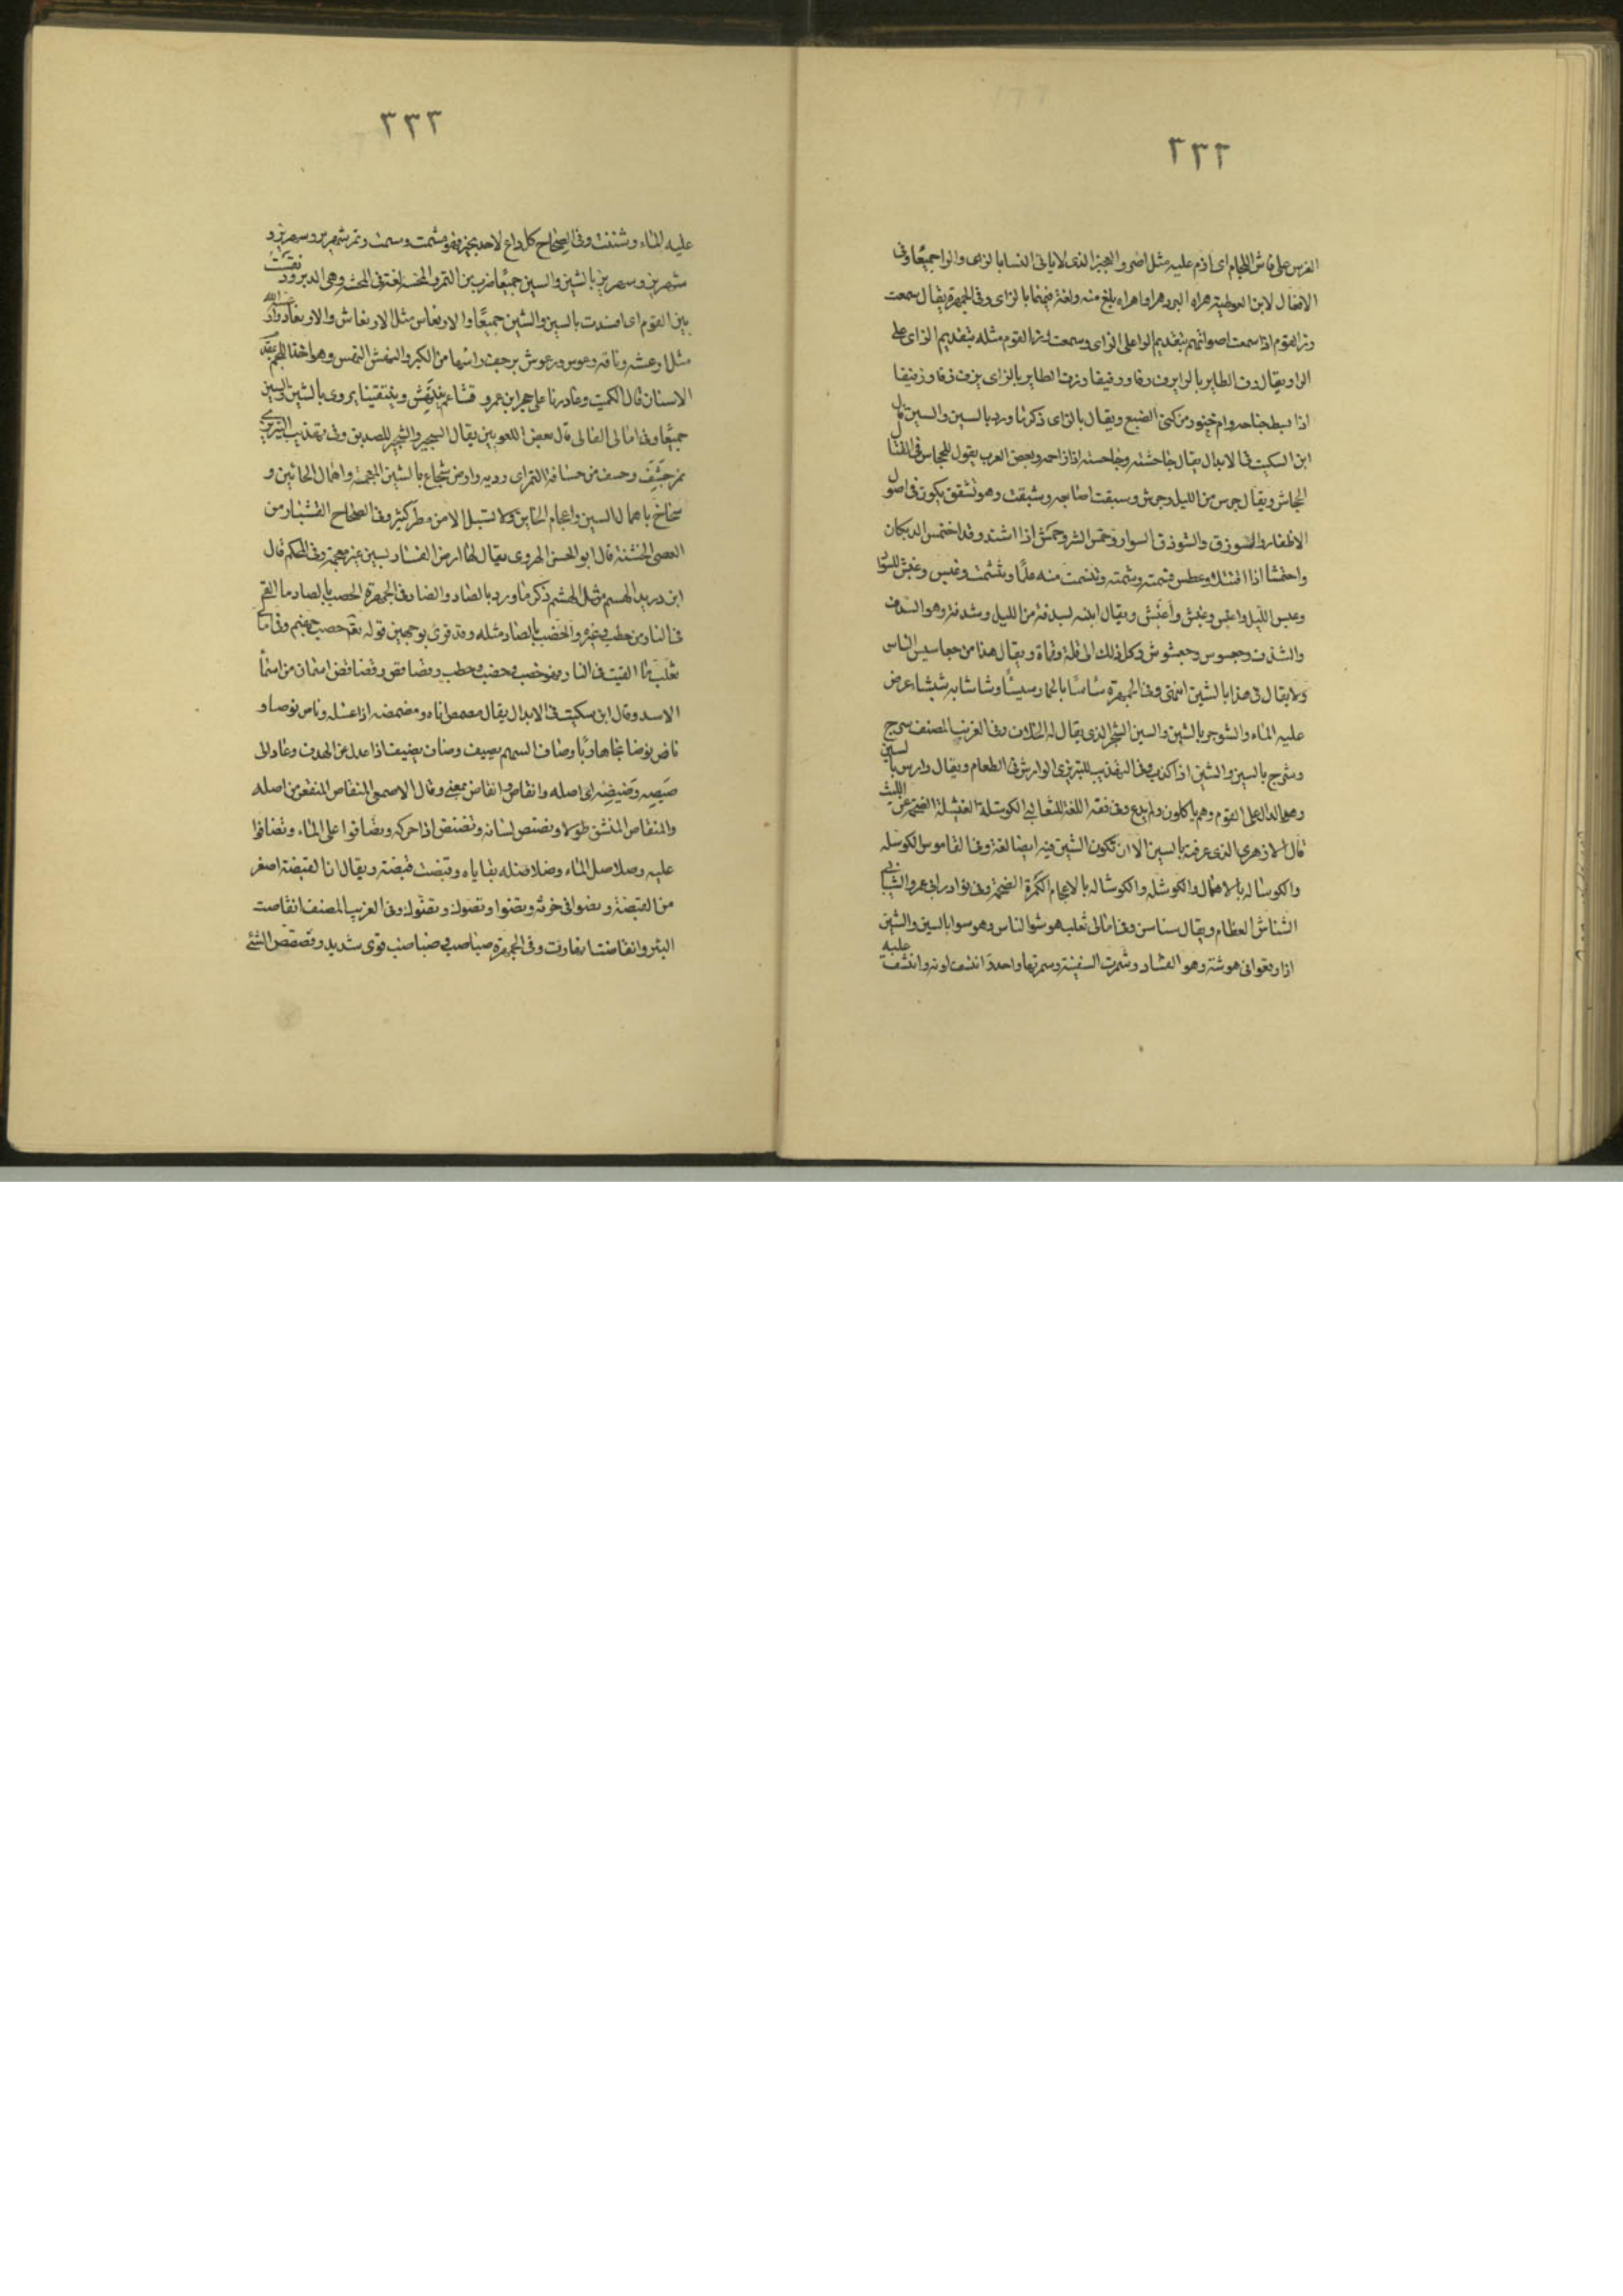 ٣٣٢
الفرس على فاس اللجام اى ازم عليه مثل اضر والعجيز الذى لا ياتى النسا بالزاى والرا جميعا وفى
الافعال لابن القوطية هراه البرد هرا واهراه بلغ منه ولغة فيهما بالزاى وفى الجمهرة يقال سمعت
رز القوم اذا سمعت اصواتهم بتقديم الرا على الزاى وسمعت زر القوم مثله بتقديم الزاى على
الرا ويقال رف الطاير بالرا يرف رفا ورفيفا وزف الطاير بالزاى يزف زفا وزفيفا
اذا بسط جناحه وام خنور من كنى الضبع ويقال بالزاى ذكر ما ورد بالسين والشين قال
ابن السكيت فى الابدال يقال جاحشته وجاحسته اذا زاحمه وبعض العرب يقول للجحاس فى القتال
الجحاش ويقال جرس من الليل وجرش وسبقت اصابعه وشبقت وهو تشقق يكون فى اصول
الاظفار والسوزق والشوذق السوار وحمس الشر وحمش اذا اشتد وقد احتمس الديكان
واحتمشا اذا اقتتلا وعطس فسمته وشمته وتنسمت منه علما وتنشمت وغبس وغبش للسواد
وغبس الليل واغبس وغبش واغبش ويقال اتيته بسدفة من الليل وشدفة وهو السدف
والشدف وجعسوس وجعشوش وكل ذلك الى قلة وقماة ويقال هذا من جعاسيس الناس
ولا يقال فى هذا بالشين انتهى وفى الجمهرة ساسا بالحمار سيسا وشاشا به شيشا عرض
عليه الماء والشوجر بالشين والسين الشجر الذى يقال له الخلاف وفى الغريب المصنف سرج
وشرج بالسين والشين اذا كذب وفى التهذيب للتبريزى الوارش فى الطعام ويقال وارس بالسين
وهو الداخل على القوم وهم ياكلون ولم يدع وفى فقه اللغة للثعالبى الكوسلة الفيشلة الضخمة عن الليث
قال الازهرى الذى عرفته بالسين الا ان تكون الشين فيه ايضا لغة وفى القاموس الكوسله
والكوساله بالاهمال والكوشله والكوشاله بالاعجام الكمرة الضخمة وفى نوادر ابى عمرو الشيبانى
الشناشن العظام ويقال سناسن وفى امالى ثعلب هوشوا الناس وهوسوا بالسين والشين
اذا وقعوا فى هوشة وهو الفساد وشمرت السفينة وسمرتها واحد وانتشف لونه وانتسف
٣٣٣
عليه الماء وشننت وفى الصحاح كل داع لاحد بخير فهو مشمت ومسمت وتمر شهريز وسهريز و
شهريز وسهريز بالشين والسين جميعا ضرب من التمر والمحسة لغة فى المحشة وهى الدبر ونقست
بين القوم اى افسدت بالسين والشين جميعا والارتعاس مثل الارتعاش والارتعاد وارعسه الله
مثل ارعشه وناقة رعوس ورعوش يرجف راسها من الكبر والنهش النهس وهو اخذ اللحم بمقدم
الاسنان قال الكميت وغادرنا على حجر ابن عمرو قشاعم ينتهش وينتقينا يروى بالشين والسين
جميعا وفى امالى القالى قال بعض اللغويين يقال السجير والشجير للصديق وفى تهذيب التبريزى
تمر حشف وحسف من حسافة التمر اى رديه وارض شحاح بالشين المعجمة واهمال الحائين و
سخاخ باهمال السين واعجام الخاين ولا تسيل الا من مطر كثير وفى الصحاح القشبار من
العصى الخشنة قال ابو الحسن الهروى يقال لها الرض القسبار بسين غير معجمة وفى المحكم قال
ابن دريد الهسم مثل الهشم ذكر ما ورد بالصاد والضاد وفى الجمهرة الحصب بالصاد ما القى
فى النار من حطب وغيره والحضب بالضاد مثله وقد قرئ بوجهين قوله تعالى حصب جهنم وفى امالى
ثعلب ما القيت فى النار فهو حصب وحضب وحطب وقصاقص وقضاقض اسمان من اسماء
الاسد وقال ابن سكيت فى الابدال يقال مصمص اناه ومضمضه اذا غسله وناص نوصا و
ناض نوضا نجا هاربا وصاف السهم يصيف وضاف يضيف اذا عدل عن الهدف وعاد الى
صيصه وضيضه اى اصله وانقاص وانقاض بمعنى وقال الاصمعى المنقاص المنقعر من اصله
والمنقاض المنشق طولا ونصنص لسانه ونضنض اذا حركه وتصافوا على الماء وتضافوا
عليه وصلاصل الماء وضلاضله بقاياه وقبصت قبصة ويقال ان القبصة اصغر
من القبضة
البئر وانقاضت انهارت وفى الجمهرة صباصب وضباضب قوى شديد وقصقص الشئ